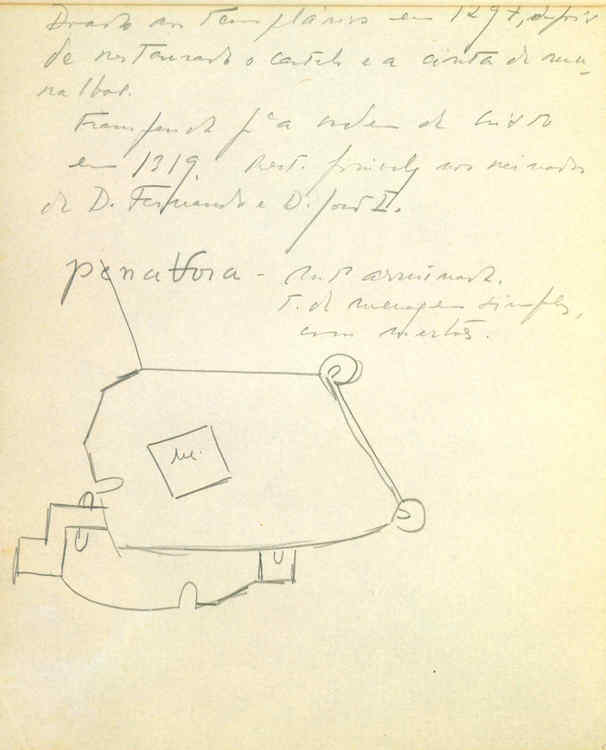 Doado aos Templários em 1297, depois
de restaurado o castelo e a cinta de mu-
ralhas.
Transferido pª a ordem de Cristo
em 1319. Rest. nos reinados
de D. Fernando e D. João II.
Penafora - Muito arruinado.
T. de menagem simples,
com
M.